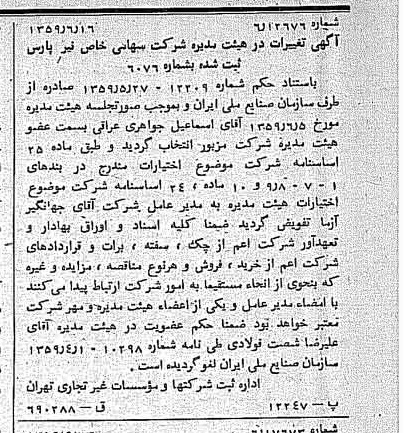 شماره ۶/۱۲۶۷۶ ۱۳۵۹/۶/۱۶
آگهی تغییرات در هیئت مدیره شرکت سهامی خاص قیر پارس
ثبت شده بشماره ۶۰۷۶
باستناد حکم شماره ۱۲۲۰۹ - ۱۳۵۹/۵/۲۷ صادره از
طرف سازمان صنایع ملی ایران و بموجب صورتجلسه هیئت مدیره
مورخ ۱۳۵۹/۶/۵ آقای اسماعیل جواهری عراقی بسمت عضو
هیئت مدیره شرکت مزبور انتخاب گردید و طبق ماده ۲۵
اساسنامه شرکت موضوع اختیارات مندرج در بندهای
۱ - ۷ - ۹/۸ و ۱۰ ماده ، ۲۴ اساسنامه شرکت موضوع
اختیارات هیئت مدیره به مدیر عامل شرکت آقای جهانگیر
آزما تفویض گردید ضمنا کلیه اسناد و اوراق بهادار و
تعهدآور شرکت اعم از چک ، سفته ، برات و قراردادهای
شرکت اعم از خرید ، فروش و هرنوع مناقصه ، مزایده و غیره
که بنحوی از انحاء مستقیما به امور شرکت ارتباط پیدا می‌کنند
با امضاء مدیر عامل و یکی از اعضاء هیئت مدیره و مهر شرکت
معتبر خواهد بود ضمنا حکم عضویت در هیئت مدیره آقای
علیرضا شصت فولادی طی نامه شماره ۱۰۲۹۸ - ۱۳۵۹/۴/۱
سازمان صنایع ملی ایران لغو گردیده است .
اداره ثبت شرکتها و مؤسسات غیر تجاری تهران
پ — ۱۲۲۴۷ ق — ۶۹۰۲۸۸